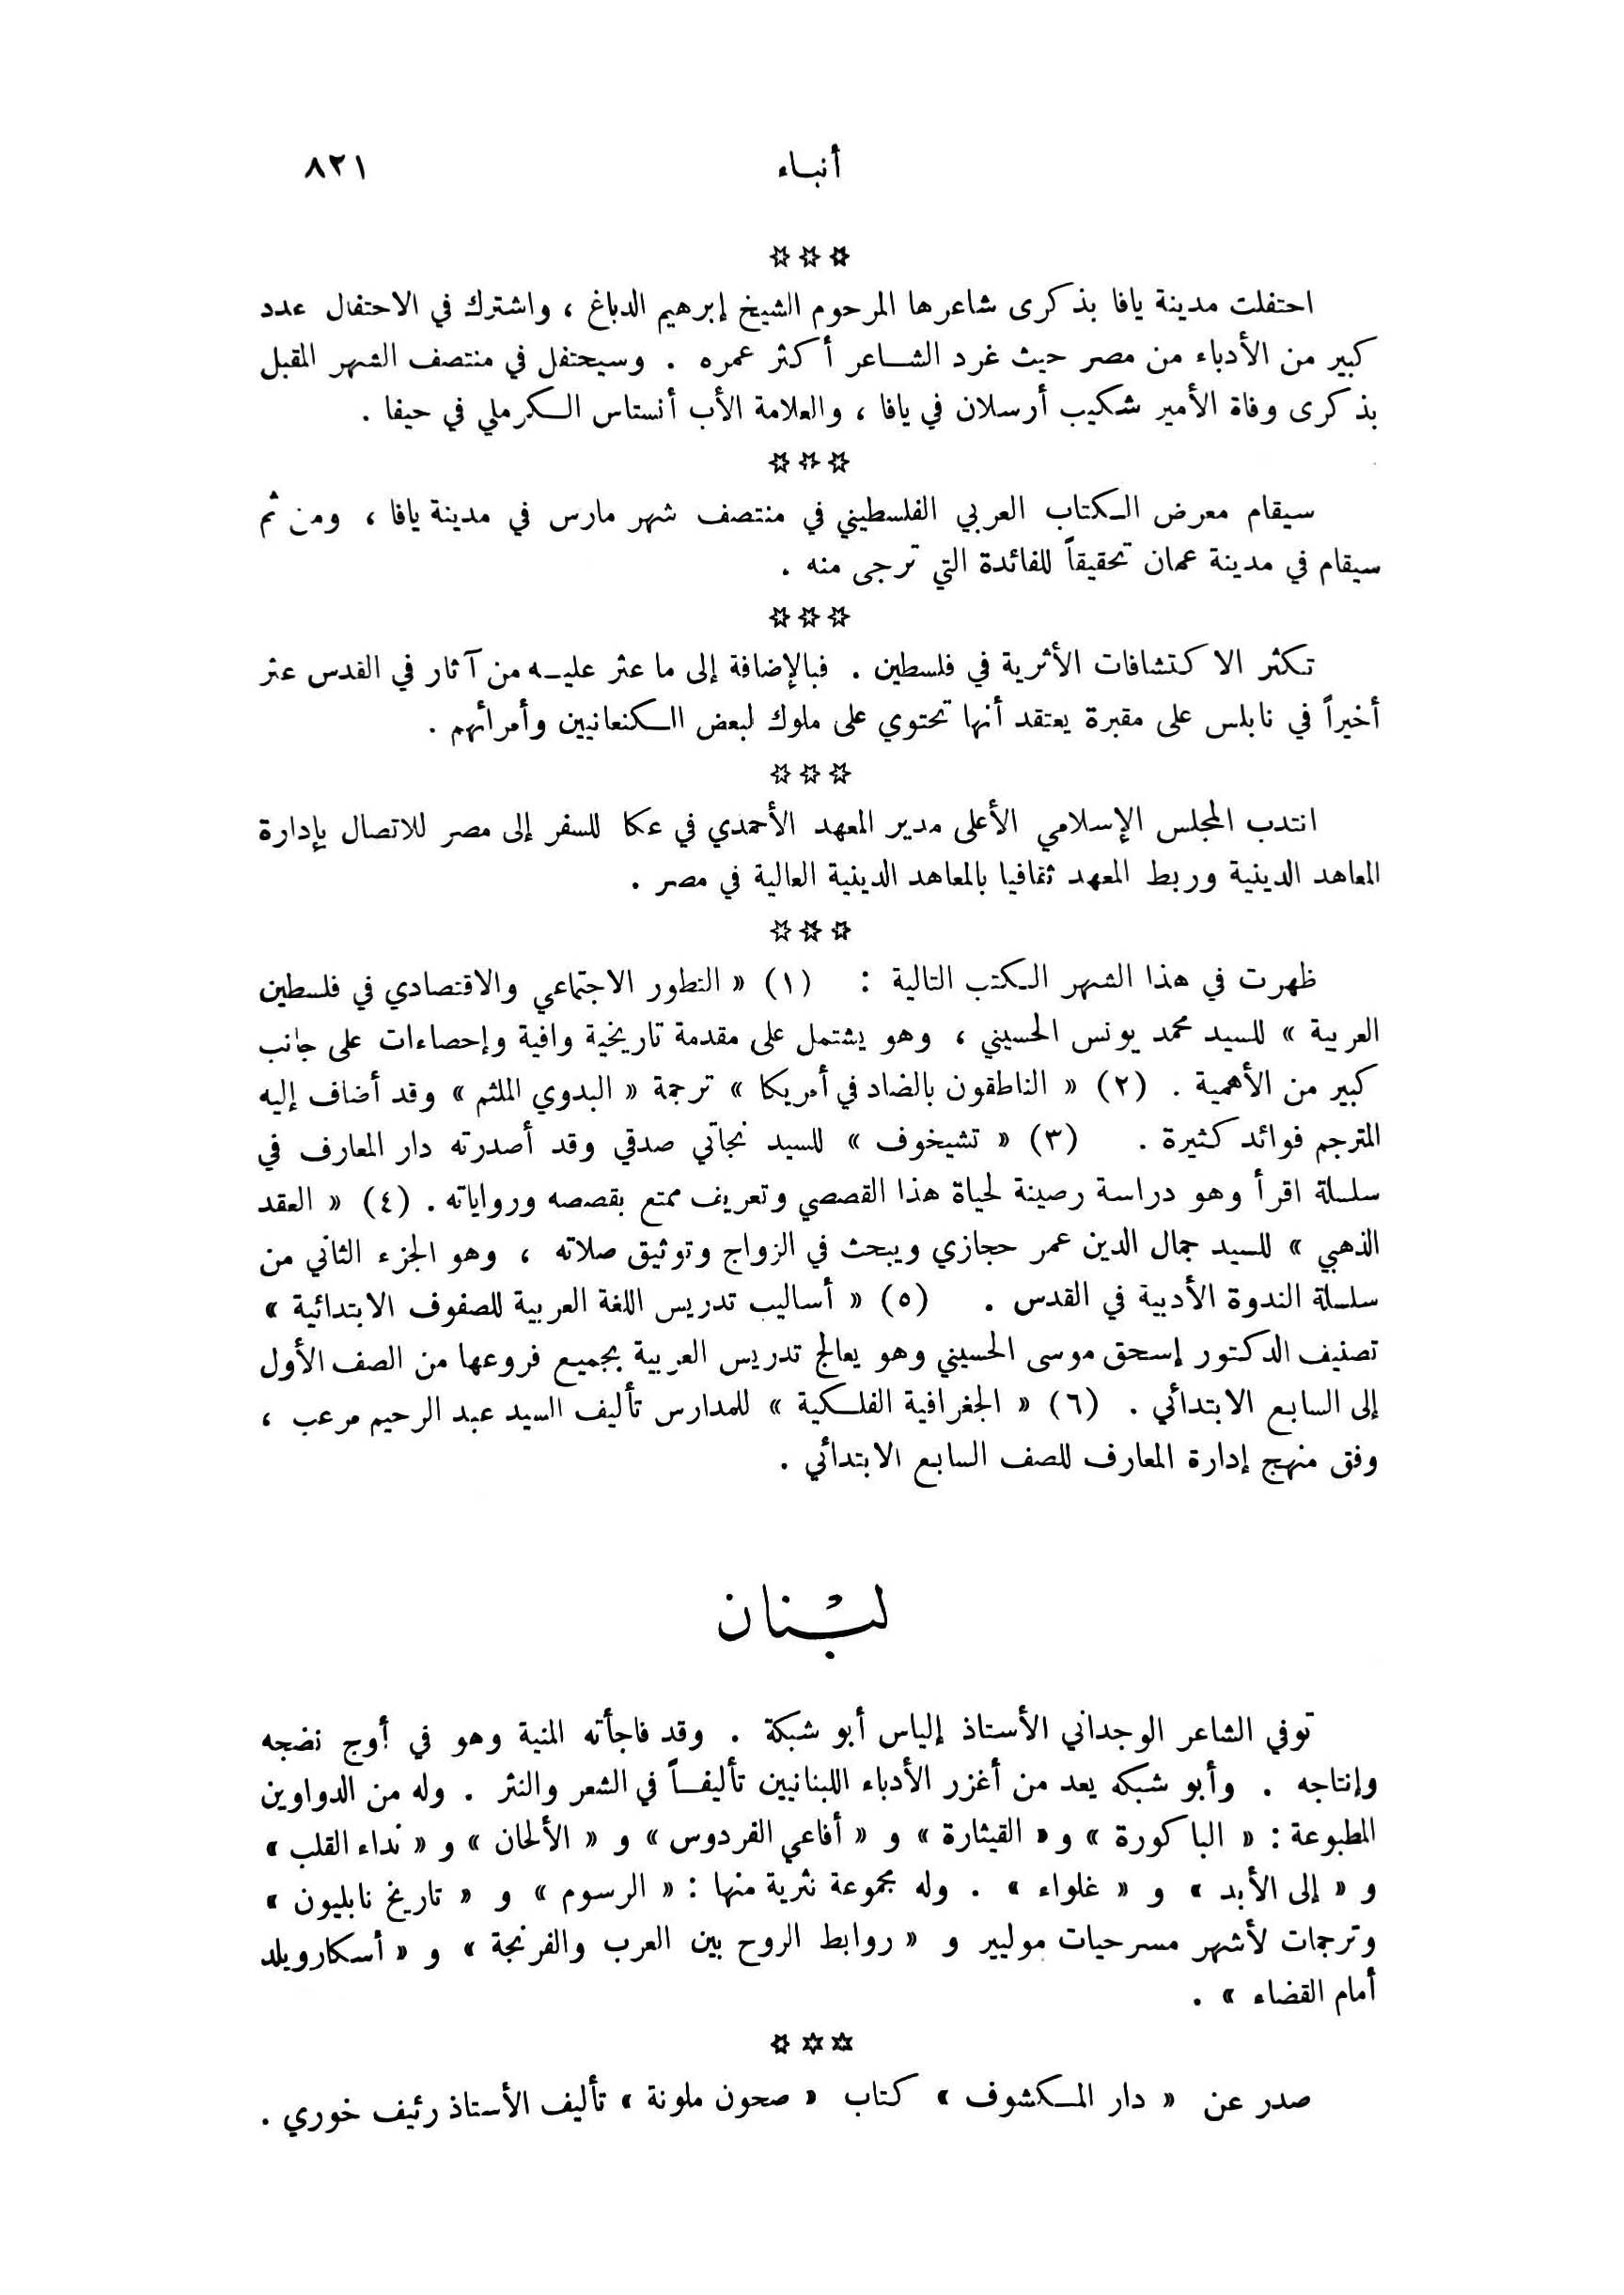 أنباء ٨٢١
***
احتفلت مدينة يافا بذكرى شاعرها المرحوم الشيخ إبرهيم الدباغ ، واشترك في الاحتفال عدد
كبير من الأدباء من مصر حيث غرد الشاعر أكثر عمره . وسيحتفل في منتصف الشهر المقبل
بذكرى وفاة الأمير شكيب أرسلان في يافا ، والعلامة الأب أنستاس الكرملي في حيفا .
***
سيقام معرض الكتاب العربي الفلسطيني في منتصف شهر مارس في مدينة يافا ، ومن ثم
سيقام في مدينة عمان تحقيقاً للفائدة التي ترجى منه .
***
تكثر الاكتشافات الأثرية في فلسطين . فبالإضافة إلى ما عثر عليه من آثار في القدس عثر
أخيراً في نابلس على مقبرة يعتقد أنها تحتوي على ملوك لبعض الكنعانيين وأمرائهم .
***
انتدب المجلس الإسلامي الأعلى مدير المعهد الأحمدي في عكا للسفر إلى مصر للاتصال بإدارة
المعاهد الدينية وربط المعهد ثقافيا بالمعاهد الدينية العالية في مصر .
***
ظهرت في هذا الشهر الكتب التالية : (١) « التطور الاجتماعي والاقتصادي في فلسطين
العربية » للسيد محمد يونس الحسيني ، وهو يشتمل على مقدمة تاريخية وافية وإحصاءات على جانب
كبير من الأهمية . (٢) « الناطقون بالضاد في أمريكا » ترجمة « البدوي الملثم » وقد أضاف إليه
المترجم فوائد كثيرة . (٣) « تشيخوف » للسيد نجاتي صدقي وقد أصدرته دار المعارف في
سلسلة اقرأ وهو دراسة رصينة لحياة هذا القصصي وتعريف ممتع بقصصه ورواياته . (٤) « العقد
الذهبي » للسيد جمال الدين عمر حجازي ويبحث في الزواج وتوثيق صلاته ، وهو الجزء الثاني من
سلسلة الندوة الأدبية في القدس . (٥) « أساليب تدريس اللغة العربية للصفوف الابتدائية »
تصنيف الدكتور إسحق موسى الحسيني وهو يعالج تدريس العربية بجميع فروعها من الصف الأول
إلى السابع الابتدائي . (٦) « الجغرافية الفلكية » للمدارس تأليف السيد عبد الرحيم مرعب ،
وفق منهج إدارة المعارف للصف السابع الابتدائي .
لبْنان
توفي الشاعر الوجداني الأستاذ إلياس أبو شبكة . وقد فاجأته المنية وهو في أوج نضجه
وإنتاجه . وأبو شبكه يعد من أغزر الأدباء اللبنانيين تأليفاً في الشعر والنثر . وله من الدواوين
المطبوعة : « الباكورة » و « القيثارة » و « أفاعي الفردوس » و « الألحان » و « نداء القلب »
و « إلى الأبد » و « غلواء » . وله مجموعة نثرية منها : « الرسوم » و « تاريخ نابليون »
وترجمات لأشهر مسرحيات موليير و « روابط الروح بين العرب والفرنجة » و « أسكارويلد
أمام القضاء » .
***
صدر عن « دار المكشوف » كتاب « صحون ملونة » تأليف الأستاذ رئيف خوري .